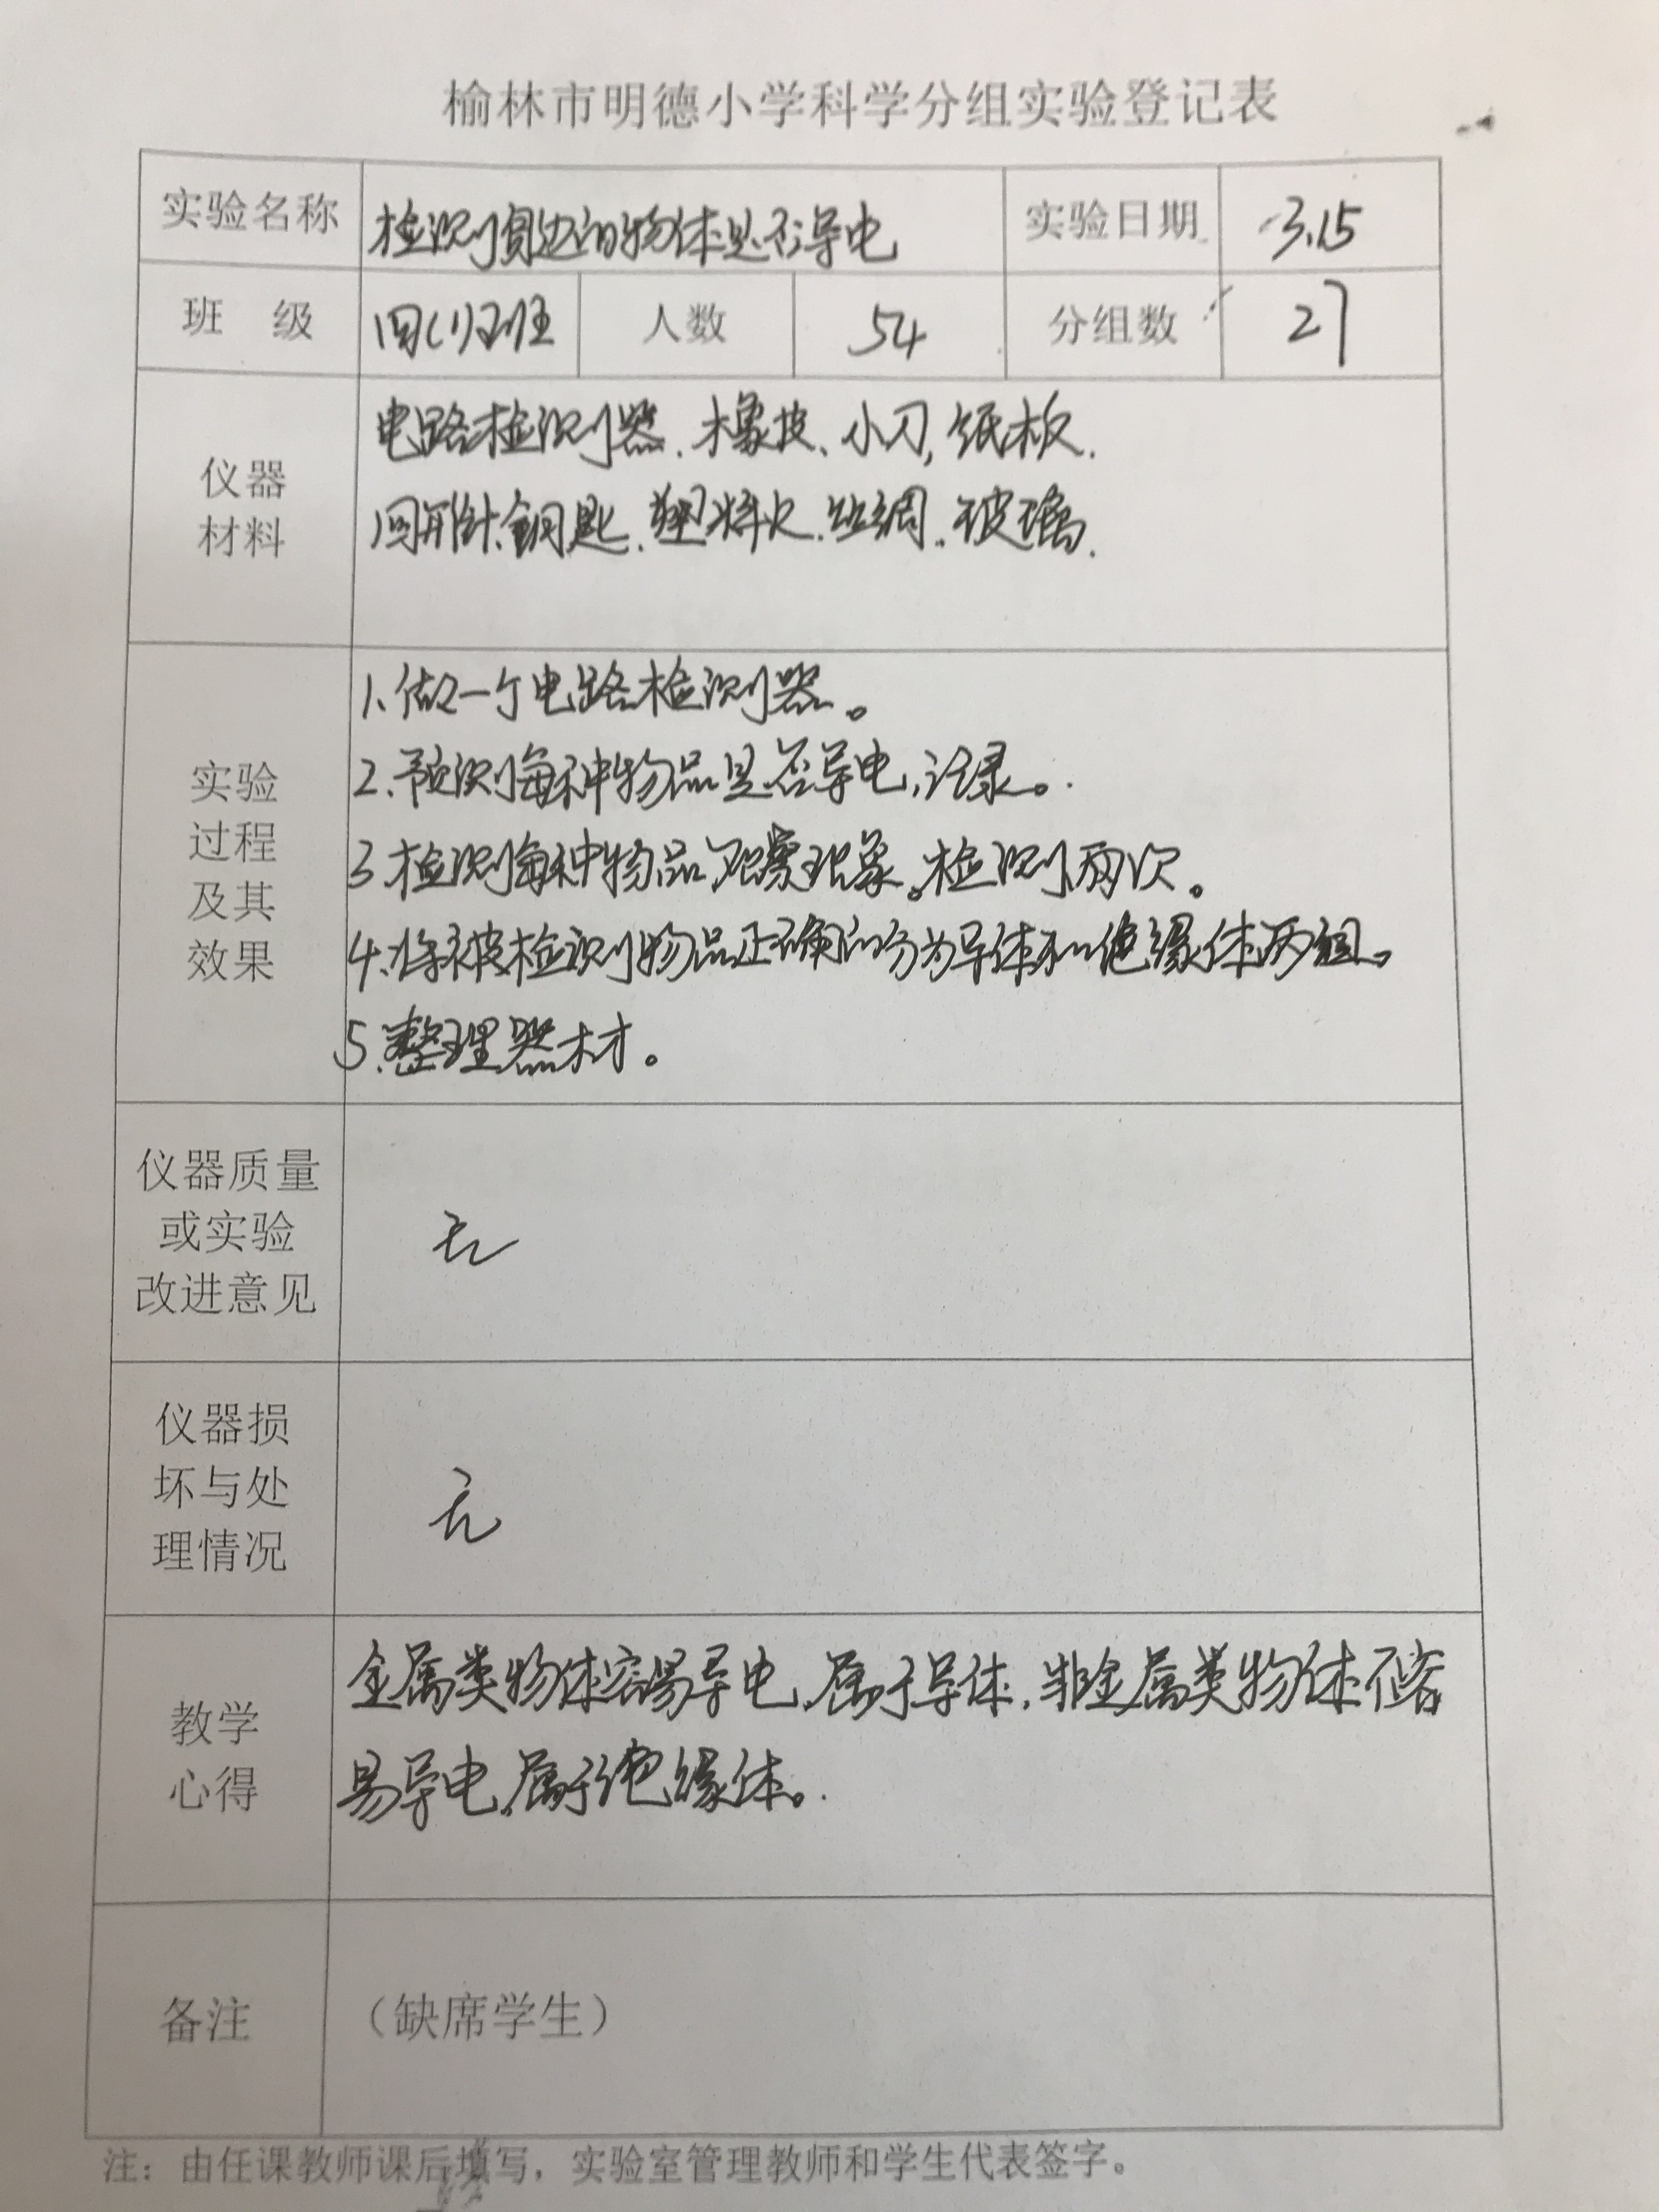 榆林市明德小学科学分组实验登记表
实验名称 检测身边的物体是否导电 实验日期 3.15
班 级 四(1)班 人数 54 分组数 27
仪器
材料
电路检测器、橡皮、小刀,纸板.
回形针、钥匙、塑料尺、丝绸、玻璃.
实验
过程
及其
效果
1、做一个电路检测器。
2、预测每种物品是否导电,记录。
3、检测每种物品,观察现象。检测两次。
4、将被检测物品正确的分为导体和绝缘体两组。
5、整理器材。
仪器质量
或实验
改进意见
无
仪器损
坏与处
理情况
无
教学
心得
金属类物体容易导电,属于导体,非金属类物体不容
易导电,属于绝缘体。
备注
(缺席学生)
注:由任课教师课后填写,实验室管理教师和学生代表签字。